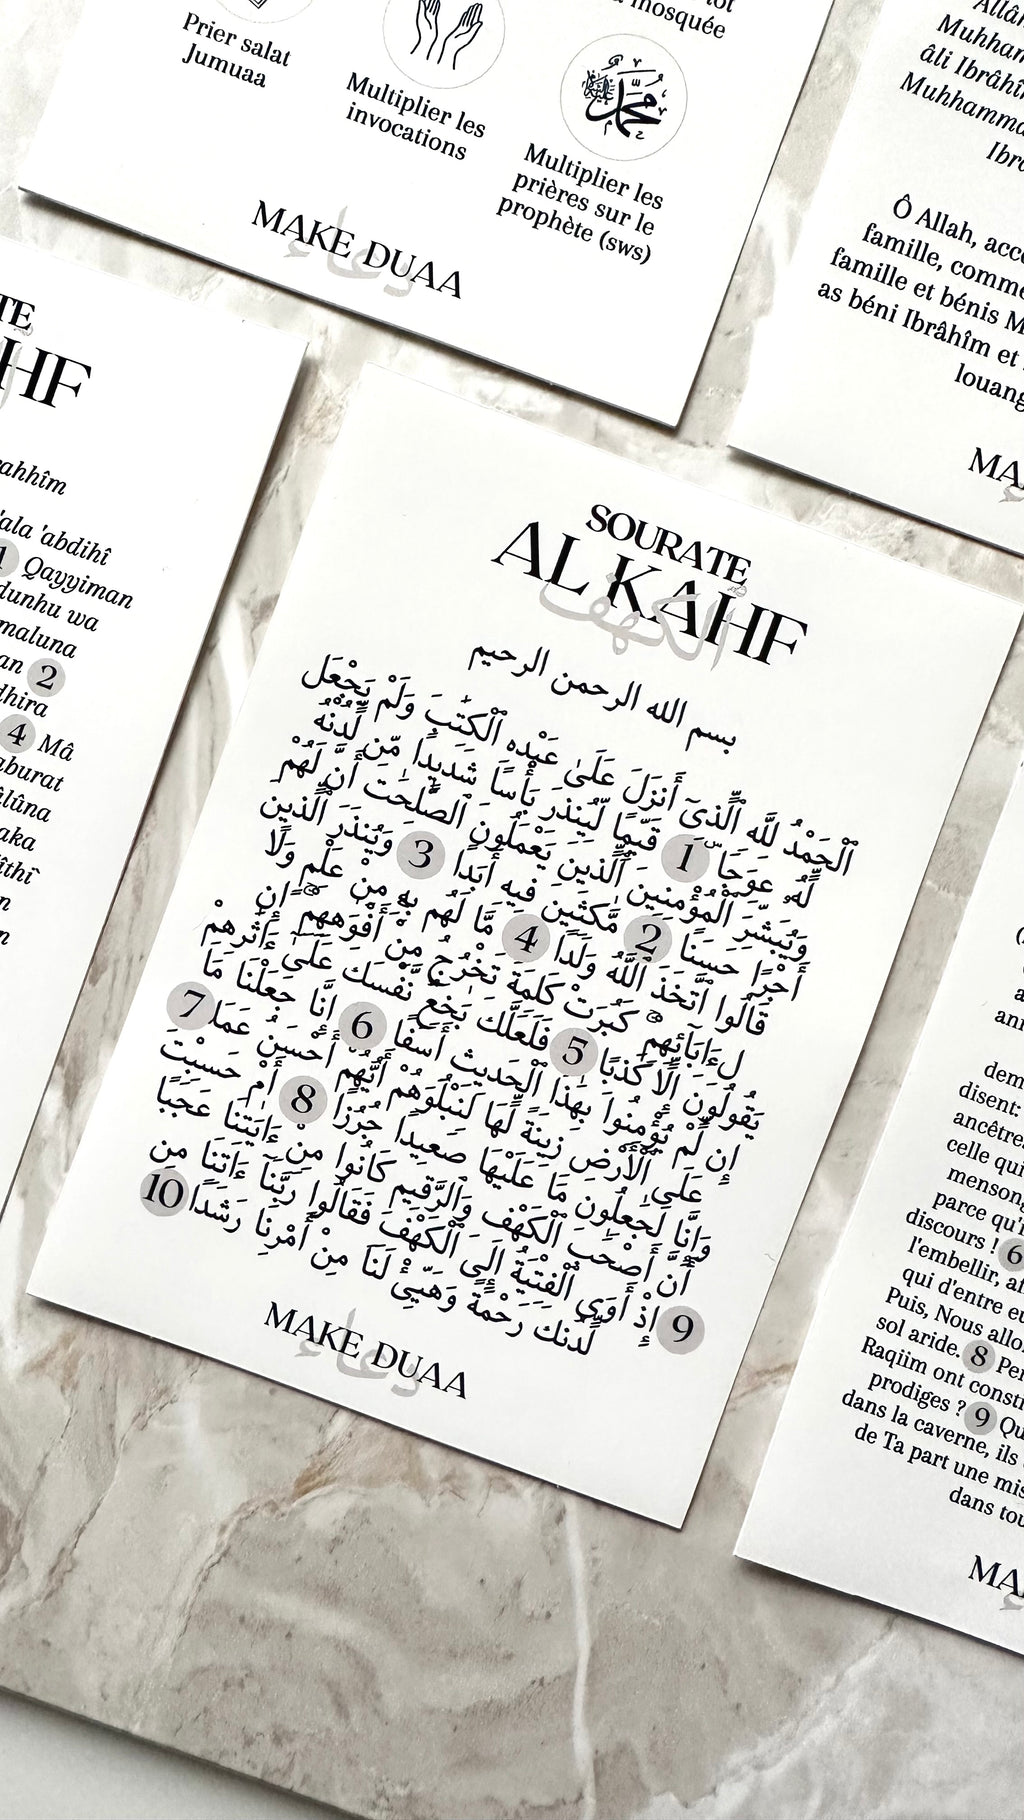 tôt
mosquée
Prier salat
Jumuaa
Multiplier les
invocations
محمد
Multiplier les
prières sur le
prophète (sws)
MAKE DUAA
دعاء
Muhammad
âli Ibrâhîm
Ô Allah,
famille, comme
famille et bénis
as béni Ibrâhîm et
MAKE
'ala 'abdihî
1 Qayyiman
dunhu wa
2
4 Mâ
SOURATE
AL KAHF
الكهف
بسم الله الرحمن الرحيم
ٱلْحَمْدُ لِلَّهِ ٱلَّذِىٓ أَنزَلَ عَلَىٰ عَبْدِهِ ٱلْكِتَٰبَ وَلَمْ يَجْعَل
لَّهُۥ عِوَجَا ۜ 1 قَيِّمًا لِّيُنذِرَ بَأْسًا شَدِيدًا مِّن لَّدُنْهُ
وَيُبَشِّرَ ٱلْمُؤْمِنِينَ ٱلَّذِينَ يَعْمَلُونَ ٱلصَّٰلِحَٰتِ أَنَّ لَهُمْ
أَجْرًا حَسَنًا 2 مَّٰكِثِينَ فِيهِ أَبَدًا 3 وَيُنذِرَ ٱلَّذِينَ
قَالُوا ٱتَّخَذَ ٱللَّهُ وَلَدًا 4 مَّا لَهُم بِهِۦ مِنْ عِلْمٍ وَلَا
لِءَابَآئِهِمْ ۚ كَبُرَتْ كَلِمَةً تَخْرُجُ مِنْ أَفْوَٰهِهِمْ ۚ إِن
يَقُولُونَ إِلَّا كَذِبًا 5 فَلَعَلَّكَ بَٰخِعٌ نَّفْسَكَ عَلَىٰٓ ءَاثَٰرِهِمْ
إِن لَّمْ يُؤْمِنُوا بِهَٰذَا ٱلْحَدِيثِ أَسَفًا 6 إِنَّا جَعَلْنَا مَا
عَلَى ٱلْأَرْضِ زِينَةً لَّهَا لِنَبْلُوَهُمْ أَيُّهُمْ أَحْسَنُ عَمَلًا 7
وَإِنَّا لَجَٰعِلُونَ مَا عَلَيْهَا صَعِيدًا جُرُزًا 8 أَمْ حَسِبْتَ
أَنَّ أَصْحَٰبَ ٱلْكَهْفِ وَٱلرَّقِيمِ كَانُوا مِنْ ءَايَٰتِنَا عَجَبًا
9 إِذْ أَوَى ٱلْفِتْيَةُ إِلَى ٱلْكَهْفِ فَقَالُوا رَبَّنَآ ءَاتِنَا مِن
لَّدُنكَ رَحْمَةً وَهَيِّئْ لَنَا مِنْ أَمْرِنَا رَشَدًا 10
MAKE DUAA
دعاء
disent:
celle qui
parce qu'
discours ! 6
l'embellir,
qui d'entre
Puis, Nous
sol aride. 8
Raqiim ont
prodiges ? 9
dans la caverne, ils
de Ta part une
dans
MAKE